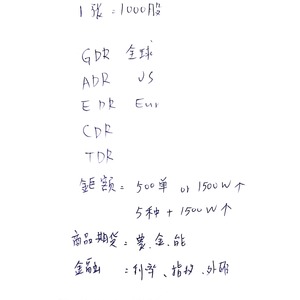 1張 = 1000股
GDR 全球
ADR US
EDR Eur
CDR
TDR
鉅額 = 500单 or 1500W↑
5种 + 1500W↑
商品期貨 = 農.金.能
金融 = 利率、指权、外匯